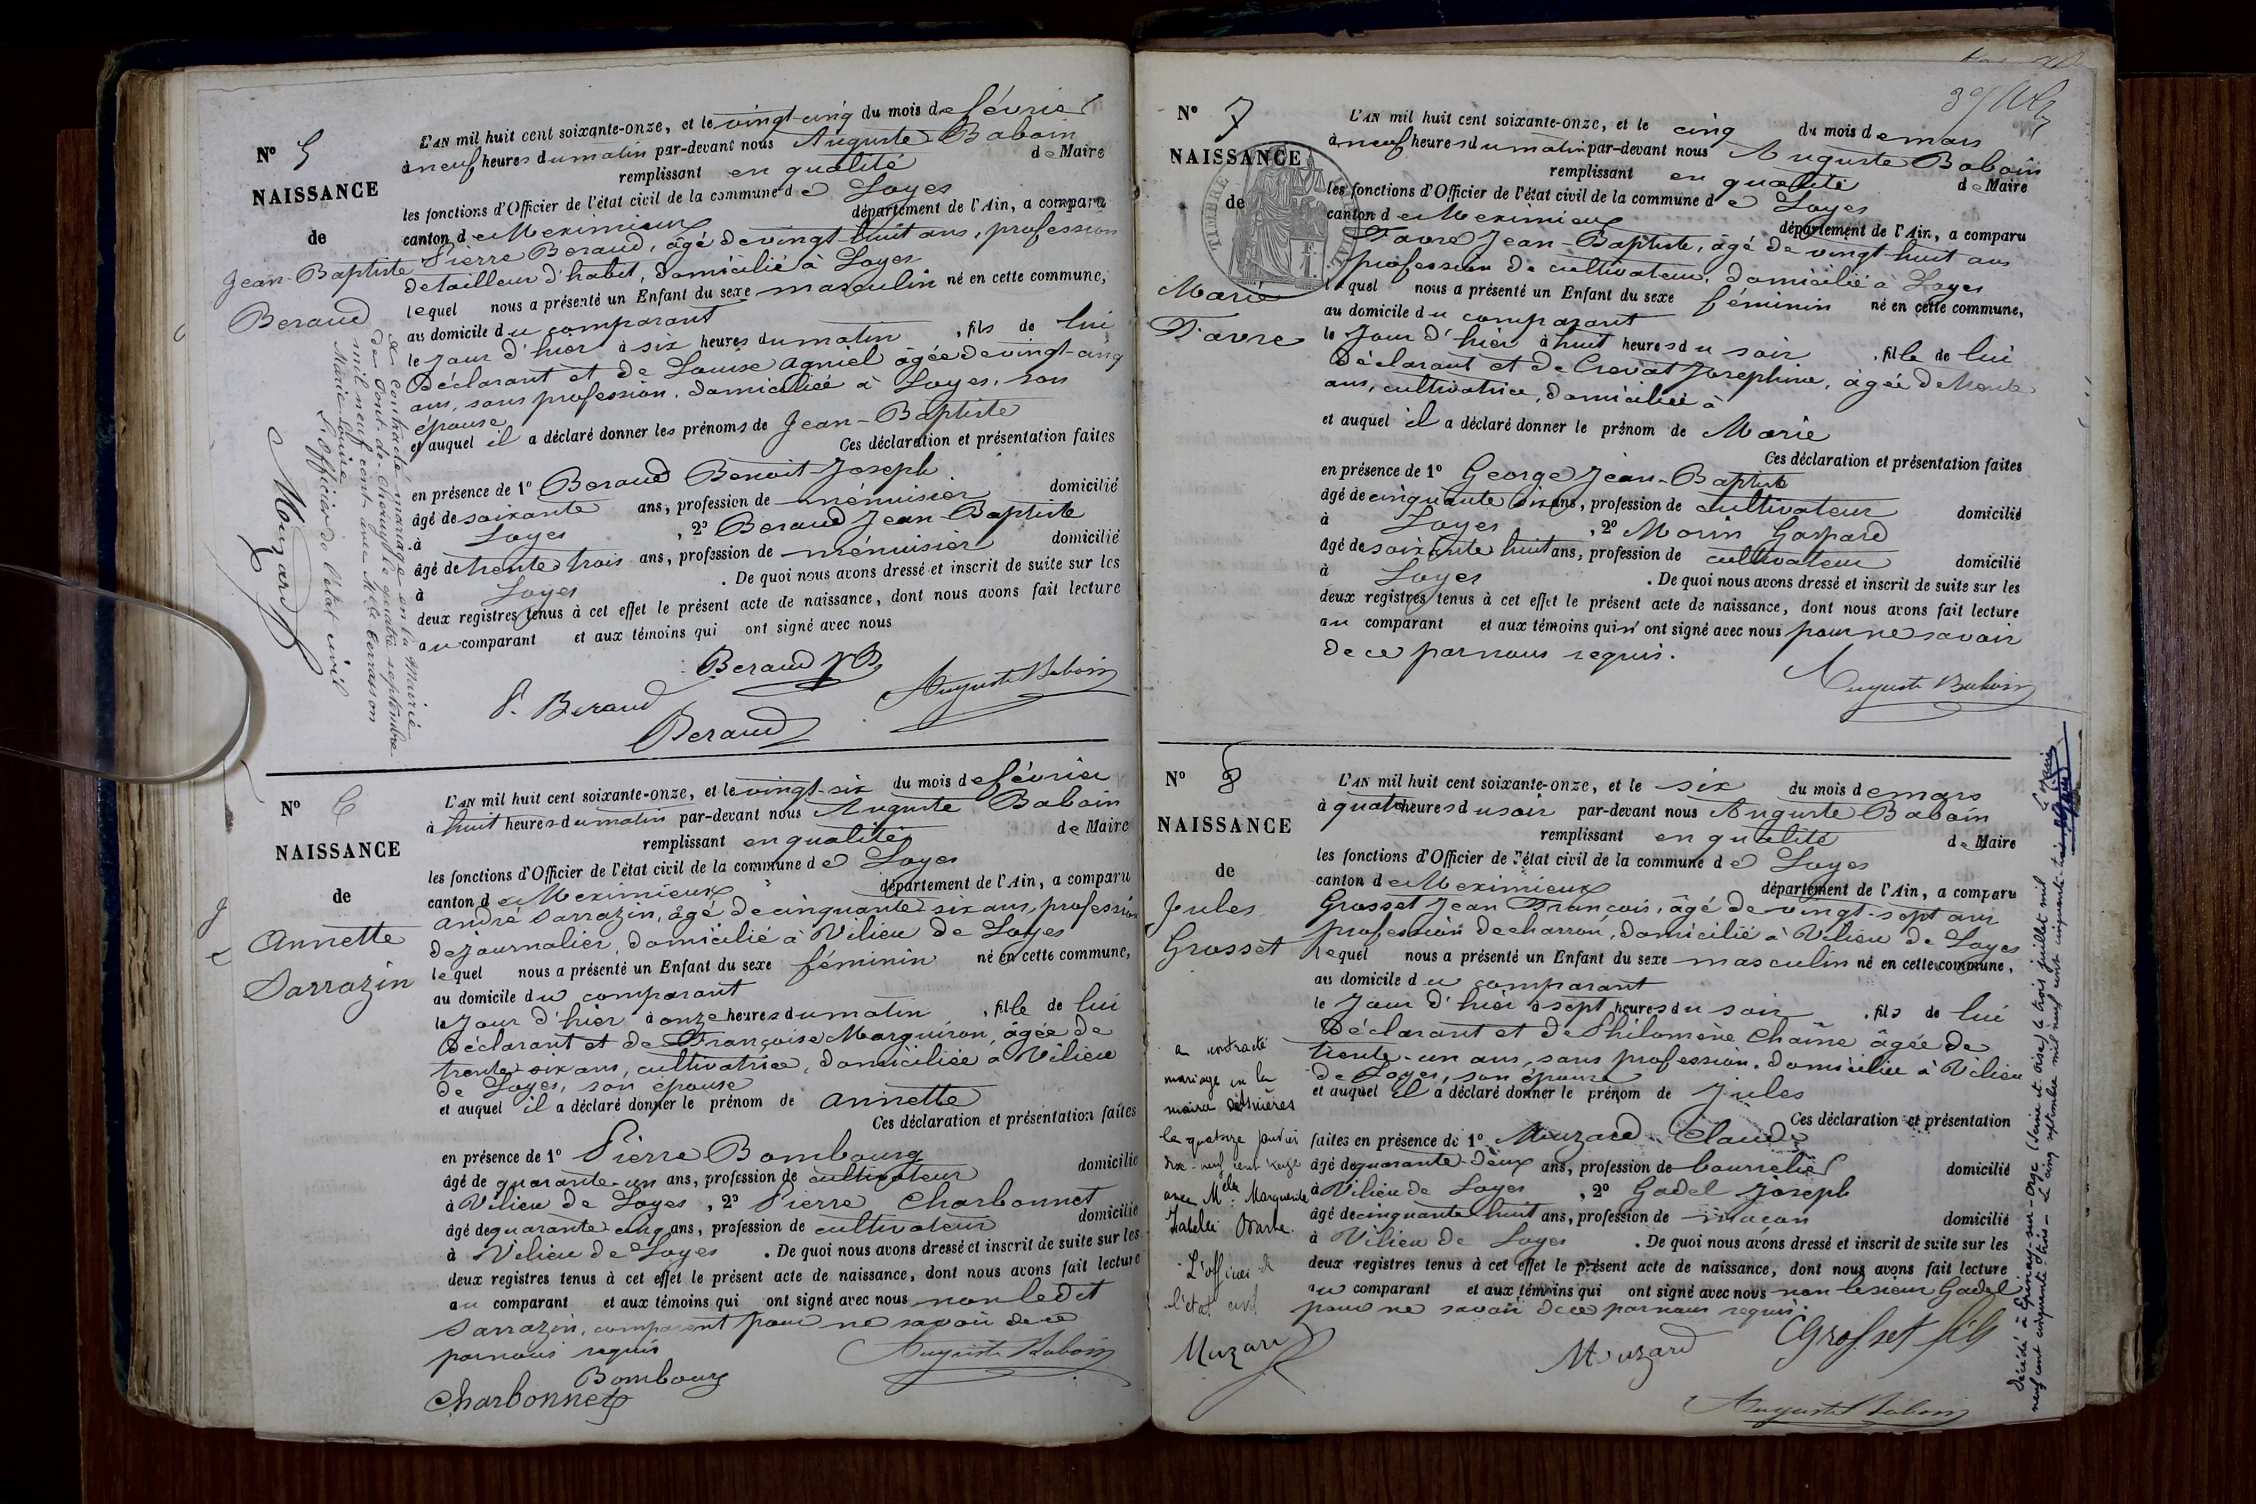 N° 5
NAISSANCE
de
Jean-Baptiste
Beraud
L'AN mil huit cent soixante-onze, et le vingt-cinq du mois de février
à neuf heures du matin par-devant nous Auguste Baboin
remplissant en qualité de Maire
les fonctions d'Officier de l'état civil de la commune de Loyes
canton de Meximieux département de l'Ain, a comparu
Pierre Beraud, âgé de vingt-huit ans, profession
de tailleur d'habit, domicilié à Loyes
lequel nous a présenté un Enfant du sexe masculin né en cette commune,
au domicile du comparant
le jour d'hier à six heures du matin, fils de lui
Déclarant et de Louise Agniel âgée de vingt-cinq
ans, sans profession, domiciliée à Loyes, son
épouse
et auquel il a déclaré donner les prénoms de Jean-Baptiste
Ces déclaration et présentation faites
en présence de 1° Beraud Benoit Joseph
âgé de soixante ans, profession de ménuisier domicilié
à Loyes, 2° Beraud Jean-Baptiste
âgé de trente trois ans, profession de ménuisier domicilié
à Loyes. De quoi nous avons dressé et inscrit de suite sur les
deux registres tenus à cet effet le présent acte de naissance, dont nous avons fait lecture
au comparant et aux témoins qui ont signé avec nous
Beraud JB
P. Beraud Auguste Baboin
Beraud
a contracté mariage en la mairie
de Pont-de-Cheruy le quatre septembre
mil neuf cent avec Melle Terrasson
Marie-Louise
L'officier de l'état civil
Mouzard
N° 6
NAISSANCE
de
Annette
Sarrazin
L'AN mil huit cent soixante-onze, et le vingt-six du mois de février
à huit heures du matin par-devant nous Auguste Baboin
remplissant en qualité de Maire
les fonctions d'Officier de l'état civil de la commune de Loyes
canton de Meximieux département de l'Ain, a comparu
André Sarrazin, âgé de cinquante-six ans, profession
de journalier, domicilié à Vilieu de Loyes
lequel nous a présenté un Enfant du sexe féminin né en cette commune,
au domicile du comparant
le jour d'hier à onze heures du matin, fille de lui
Déclarant et de Françoise Marguiron, âgée de
trente six ans, cultivatrice, domiciliée à Vilieu
de Loyes, son épouse
et auquel il a déclaré donner le prénom de Annette
Ces déclaration et présentation faites
en présence de 1° Pierre Bombourg
âgé de quarante-un ans, profession de cultivateur domicilié
à Vilieu de Loyes, 2° Pierre Charbonnet
âgé de quarante cinq ans, profession de cultivateur domicilié
à Vilieu de Loyes. De quoi nous avons dressé et inscrit de suite sur les
deux registres tenus à cet effet le présent acte de naissance, dont nous avons fait lecture
au comparant et aux témoins qui ont signé avec nous non ledit
Sarrazin, comparent pour ne savoir de ce
par nous requis
Auguste Baboin
Bombourg
Charbonnet
N° 7
NAISSANCE
de
Marie
Favre
L'AN mil huit cent soixante-onze, et le cinq du mois de mars
à neuf heures du matin par-devant nous Auguste Baboin
remplissant en qualité de Maire
les fonctions d'Officier de l'état civil de la commune de Loyes
canton de Meximieux département de l'Ain, a comparu
Favre Jean-Baptiste, âgé de vingt-huit ans
profession de cultivateur, domicilié à Loyes
lequel nous a présenté un Enfant du sexe féminin né en cette commune,
au domicile du comparant
le jour d'hier à huit heures du soir, fille de lui
Déclarant et de Crevat Josephine, âgée de trente
ans, cultivatrice, domiciliée à
et auquel il a déclaré donner le prénom de Marie
Ces déclaration et présentation faites
en présence de 1° George Jean-Baptiste
âgé de cinquante six ans, profession de cultivateur domicilié
à Loyes, 2° Morin Gaspard
âgé de soixante huit ans, profession de cultivateur domicilié
à Loyes. De quoi nous avons dressé et inscrit de suite sur les
deux registres tenus à cet effet le présent acte de naissance, dont nous avons fait lecture
au comparant et aux témoins qui n'ont signé avec nous pour ne savoir
de ce par nous requis.
Auguste Baboin
N° 8
NAISSANCE
de
Jules
Grosset
L'AN mil huit cent soixante-onze, et le six du mois de mars
à quatre heures du soir par-devant nous Auguste Baboin
remplissant en qualité de Maire
les fonctions d'Officier de l'état civil de la commune de Loyes
canton de Meximieux département de l'Ain, a comparu
Grosset Jean François, âgé de vingt-sept ans
profession de charron, domicilié à Vilieu de Loyes
lequel nous a présenté un Enfant du sexe masculin né en cette commune,
au domicile du comparant
le jour d'hier à sept heures du soir, fils de lui
Déclarant et de Philomène Chaîne âgée de
trente-un ans, sans profession, domiciliée à Vilieu
de Loyes, son épouse
et auquel il a déclaré donner le prénom de Jules
Ces déclaration et présentation
faites en présence de 1° Mouzard Claude
âgé de quarante-deux ans, profession de bourrelier domicilié
à Vilieu de Loyes, 2° Gadel Joseph
âgé de cinquante-huit ans, profession de maçon domicilié
à Vilieu de Loyes. De quoi nous avons dressé et inscrit de suite sur les
deux registres tenus à cet effet le présent acte de naissance, dont nous avons fait lecture
au comparant et aux témoins qui ont signé avec nous non le sieur Gadel
pour ne savoir de ce par nous requis.
Mouzard Grosset fils
Auguste Baboin
a contracté
mariage en la
mairie d'Asnières
le quatorze janvier
dix-neuf cent seize
avec Melle Marguerite
Isabelle
L'officier de
l'état civil
Muzard
Décédé à Epinay-sur-Orge (Seine et Oise) le trois juillet mil
neuf cent cinquante-trois - Le cinq septembre mil neuf cent cinquante-trois
Le Maire